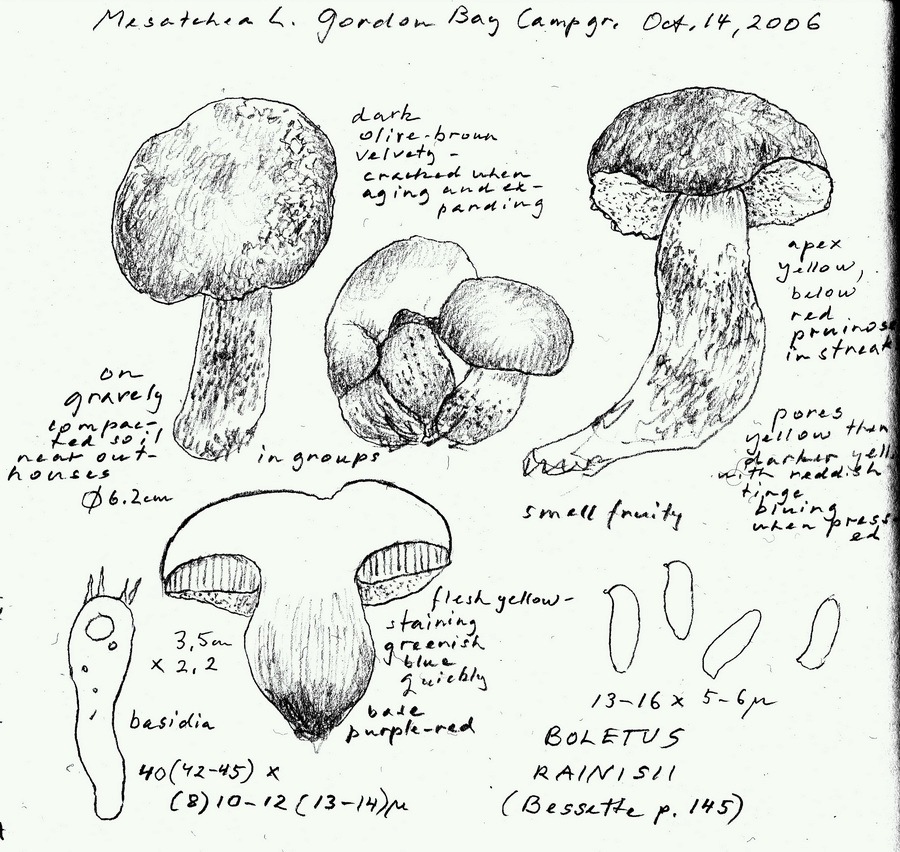 Mesatchea L. Gordon Bay Campgr. Oct. 14, 2006
dark
olive-brown
velvety -
cracked when
aging and ex-
panding
apex
yellow,
below
red
pruinose
in streak
on
gravely
compac-
ted soil
near out-
houses
Ø 6.2cm
in groups
pores
yellow then
darker yell
with reddish
tinge
bluing
when press-
ed
smell fruity
flesh yellow-
staining
greenish
blue
quickly
base
purple-red
3,5cm
x 2,2
basidia
40(42-45) x
(8)10-12(13-14)µ
13-16 x 5-6µ
BOLETUS
RAINISII
(Bessette p. 145)